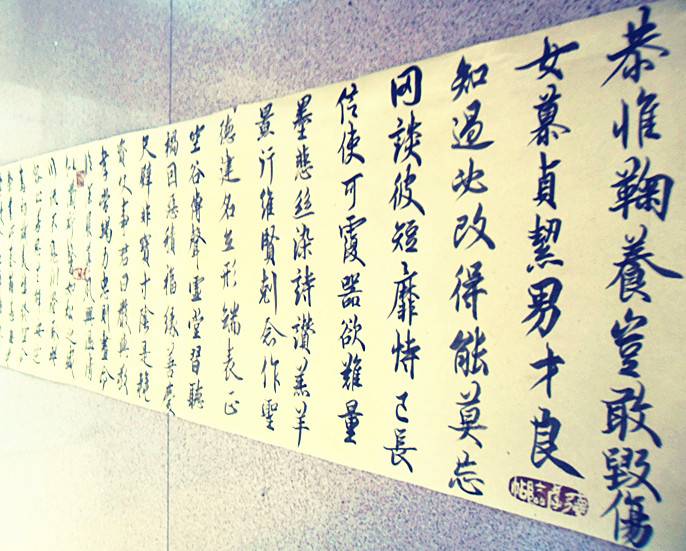 恭惟鞠養豈敢毀傷
女慕貞絜男才良
知過必改得能莫忘
罔談彼短靡恃己長
信使可覆器欲難量
墨悲絲染詩讚羔羊
景行維賢剋念作聖
德建名立形端表正
空谷傳聲虛堂習聽
禍因惡積福緣善慶
尺璧非寶寸陰是競
資父事君曰嚴與敬
孝當竭力忠則盡命
似蘭斯馨如松之盛